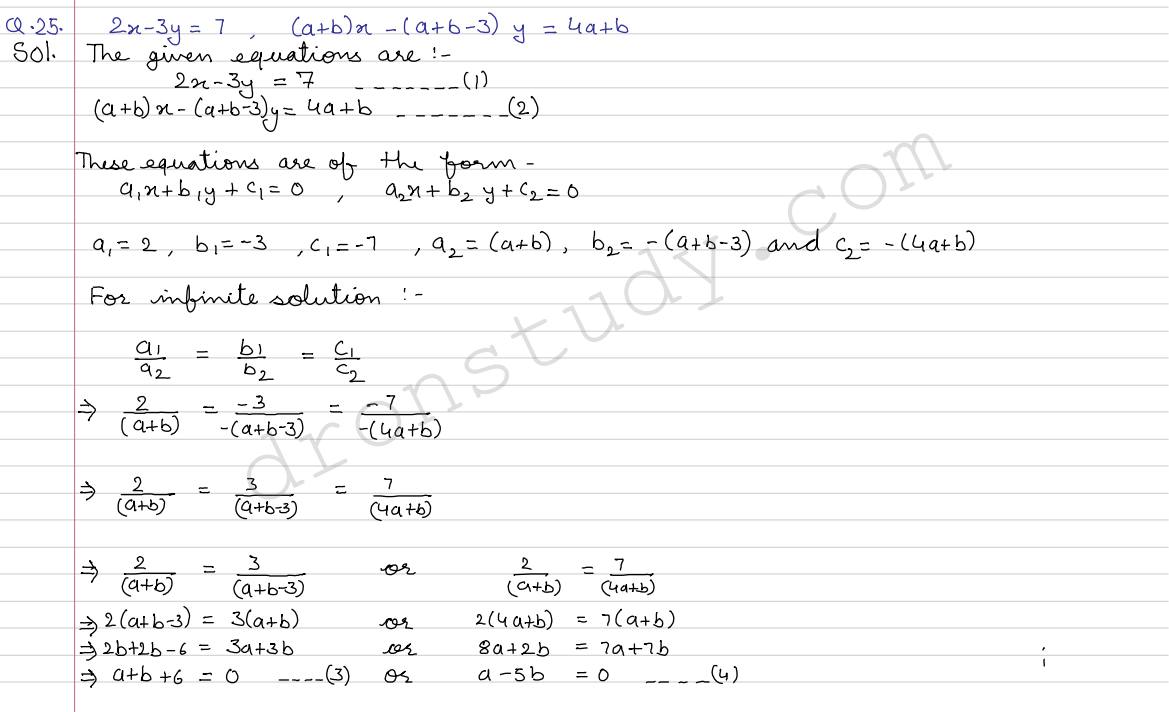 Q.25. 2x-3y = 7 , (a+b)x -(a+b-3) y = 4a+b
Sol. The given equations are :-
2x-3y = 7 -------(1)
(a+b)x-(a+b-3)y= 4a+b -------(2)
These equations are of the form -
a₁x+b₁y+c₁=0 , a₂x+b₂ y+c₂=0
a₁= 2 , b₁=-3 , c₁=-7 , a₂ = (a+b) , b₂= -(a+b-3) and c₂= -(4a+b)
For infinite solution :-
a₁/a₂ = b₁/b₂ = c₁/c₂
⇒ 2/(a+b) = -3/-(a+b-3) = -7/-(4a+b)
⇒ 2/(a+b) = 3/(a+b-3) = 7/(4a+b)
⇒ 2/(a+b) = 3/(a+b-3) or 2/(a+b) = 7/(4a+b)
⇒2(a+b-3) = 3(a+b) or 2(4a+b) = 7(a+b)
⇒2b+2b-6 = 3a+3b or 8a+2b = 7a+7b
⇒ a+b+6 = 0 ----(3) or a-5b = 0 ----(4)
dronstudy.com